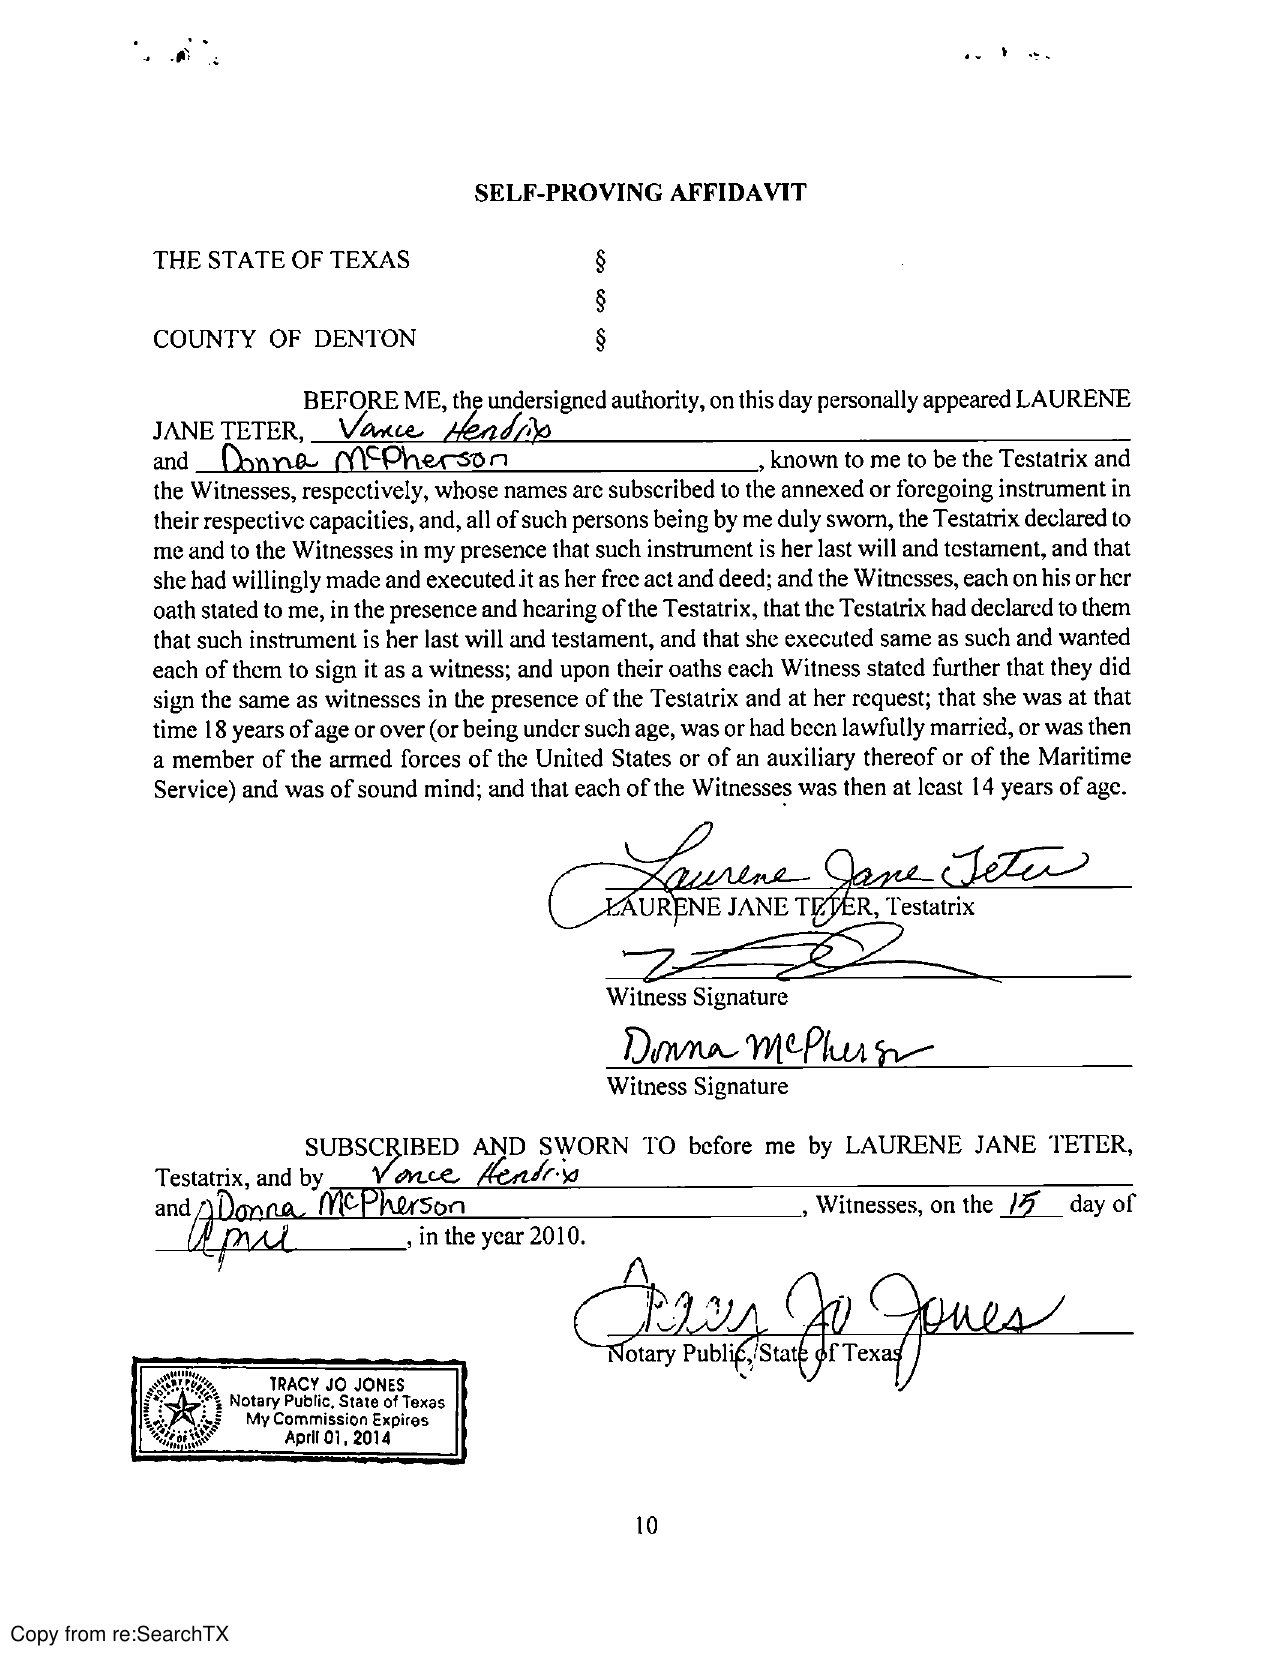 SELF-PROVING AFFIDAVIT
THE STATE OF TEXAS §
§
COUNTY OF DENTON §
BEFORE ME, the undersigned authority, on this day personally appeared LAURENE
JANE TETER, Vance Hendrix
and Donna McPherson, known to me to be the Testatrix and
the Witnesses, respectively, whose names are subscribed to the annexed or foregoing instrument in
their respective capacities, and, all of such persons being by me duly sworn, the Testatrix declared to
me and to the Witnesses in my presence that such instrument is her last will and testament, and that
she had willingly made and executed it as her free act and deed; and the Witnesses, each on his or her
oath stated to me, in the presence and hearing of the Testatrix, that the Testatrix had declared to them
that such instrument is her last will and testament, and that she executed same as such and wanted
each of them to sign it as a witness; and upon their oaths each Witness stated further that they did
sign the same as witnesses in the presence of the Testatrix and at her request; that she was at that
time 18 years of age or over (or being under such age, was or had been lawfully married, or was then
a member of the armed forces of the United States or of an auxiliary thereof or of the Maritime
Service) and was of sound mind; and that each of the Witnesses was then at least 14 years of age.
Laurene Jane Teter
LAURENE JANE TETER, Testatrix
Witness Signature
Donna McPherson
Witness Signature
SUBSCRIBED AND SWORN TO before me by LAURENE JANE TETER,
Testatrix, and by Vance Hendrix
and Donna McPherson, Witnesses, on the 15 day of
April, in the year 2010.
Tracy Jo Jones
Notary Public, State of Texas
TRACY JO JONES
Notary Public, State of Texas
My Commission Expires
April 01, 2014
10
Copy from re:SearchTX